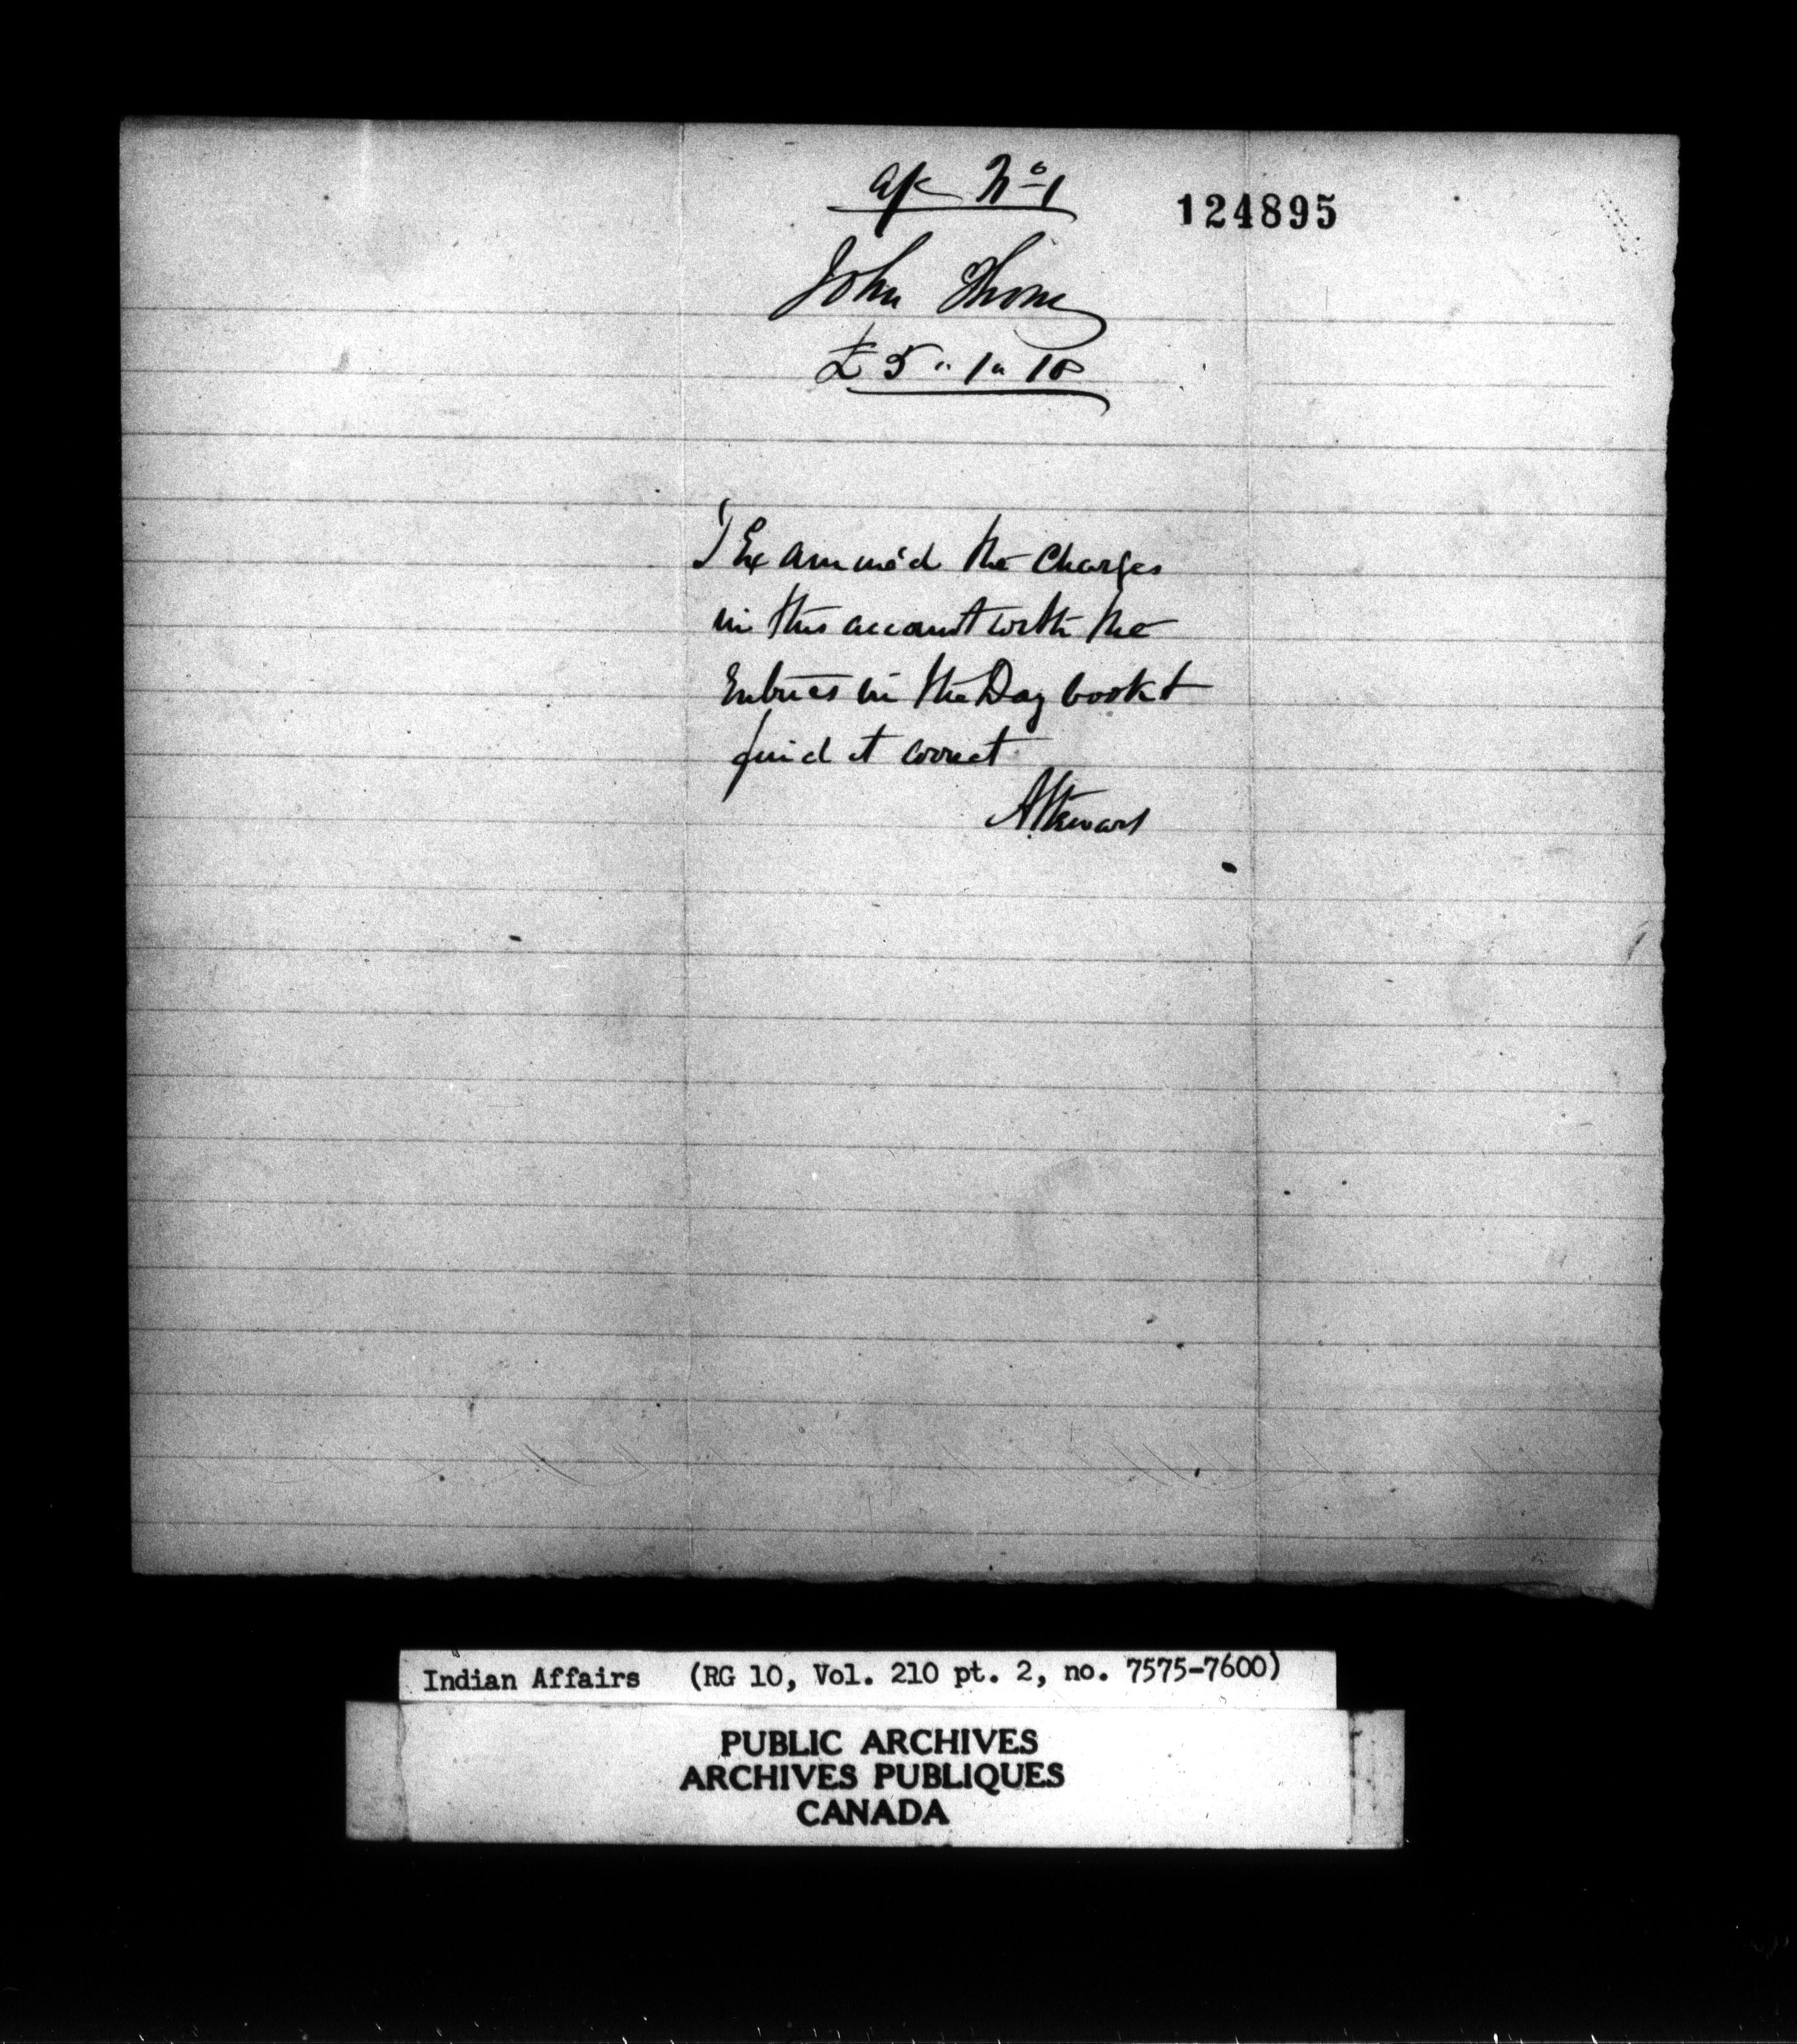 a/c No 1
124895
John Thom
£5 " 1 " 10
I Examined the Charges
in this account with the
Entries in the Day book &
find it correct
AStewart
Indian Affairs (RG 10, Vol. 210 pt. 2, no. 7575-7600)
PUBLIC ARCHIVES
ARCHIVES PUBLIQUES
CANADA